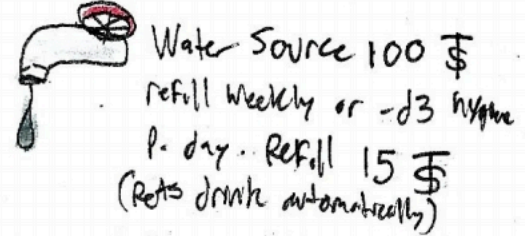 Water Source 100 $
refill weekly or -d3 hygiene
P. day. Refill 15 $
(Rats drink automatically)